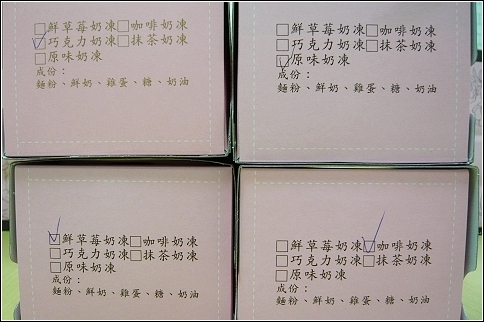 □鮮草莓奶凍□咖啡奶凍
☑巧克力奶凍□抹茶奶凍
□原味奶凍
成份：
麵粉、鮮奶、雞蛋、糖、奶油
□鮮草莓奶凍□咖啡奶凍
□巧克力奶凍□抹茶奶凍
☑原味奶凍
成份：
麵粉、鮮奶、雞蛋、糖、奶油
☑鮮草莓奶凍□咖啡奶凍
□巧克力奶凍□抹茶奶凍
□原味奶凍
成份：
麵粉、鮮奶、雞蛋、糖、奶油
□鮮草莓奶凍☑咖啡奶凍
□巧克力奶凍□抹茶奶凍
□原味奶凍
成份：
麵粉、鮮奶、雞蛋、糖、奶油